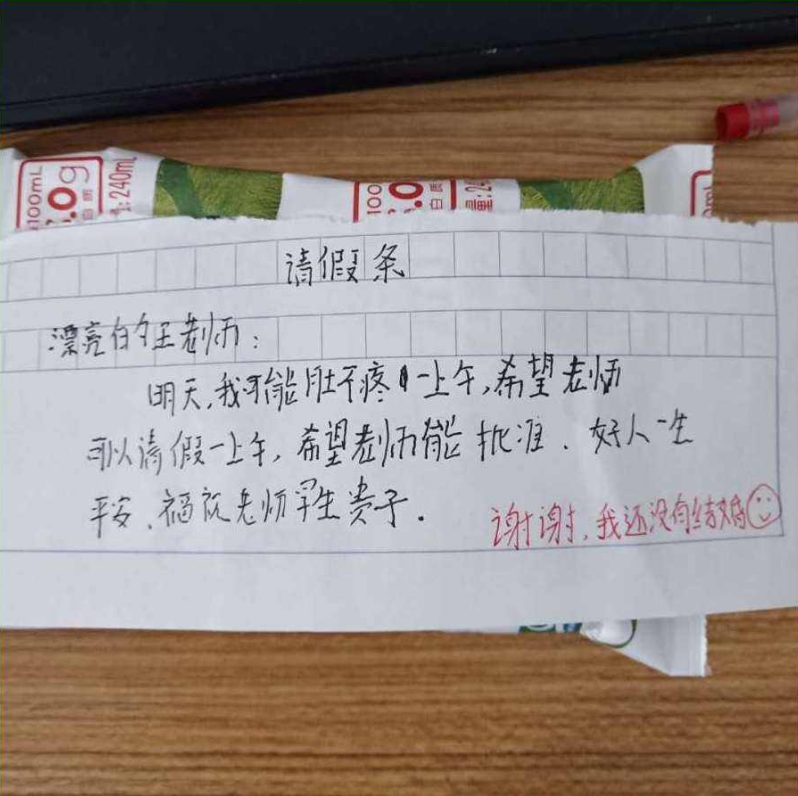 100mL
.0g
:240mL
100
.0
量:24
mL
请假条
漂亮的王老师:
明天,我可能肚子疼一上午,希望老师
可以请假一上午,希望老师能批准、好人一生
平安、祝老师早生贵子.
谢谢,我还没有结婚